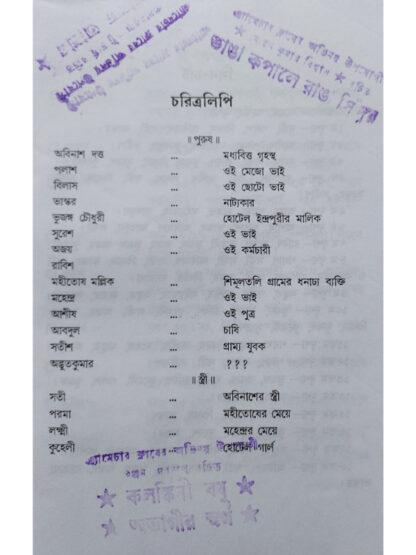 এ্যামেচার ক্লাবের অভিনয় উপযোগী
ভাঙা কপালে রাঙা সিঁদুর
চরিত্রলিপি
॥ পুরুষ ॥
অবিনাশ দত্ত ... মধ্যবিত্ত গৃহস্থ
পলাশ ... ওই মেজো ভাই
বিলাস ... ওই ছোটো ভাই
ভাস্কর ... নাট্যকার
ভুজঙ্গ চৌধুরী ... হোটেল ইন্দ্রপুরীর মালিক
সুরেশ ... ওই ভাই
অজয় ... ওই কর্মচারী
রাবিশ
মহীতোষ মল্লিক ... শিমূলতলি গ্রামের ধনাঢ্য ব্যক্তি
মহেন্দ্র ... ওই ভাই
আশীষ ... ওই পুত্র
আবদুল ... চাষি
সতীশ ... গ্রাম্য যুবক
অদ্ভুতকুমার ... ???
॥ স্ত্রী ॥
সতী ... অবিনাশের স্ত্রী
পরমা ... মহীতোষের মেয়ে
লক্ষ্মী ... মহেন্দ্রর মেয়ে
কুহেলী ... হোটেল গার্ল
এ্যামেচার ক্লাবের অভিনয় উপযোগী
কলঙ্কিনী বধূ
অভাগীর স্বর্গ